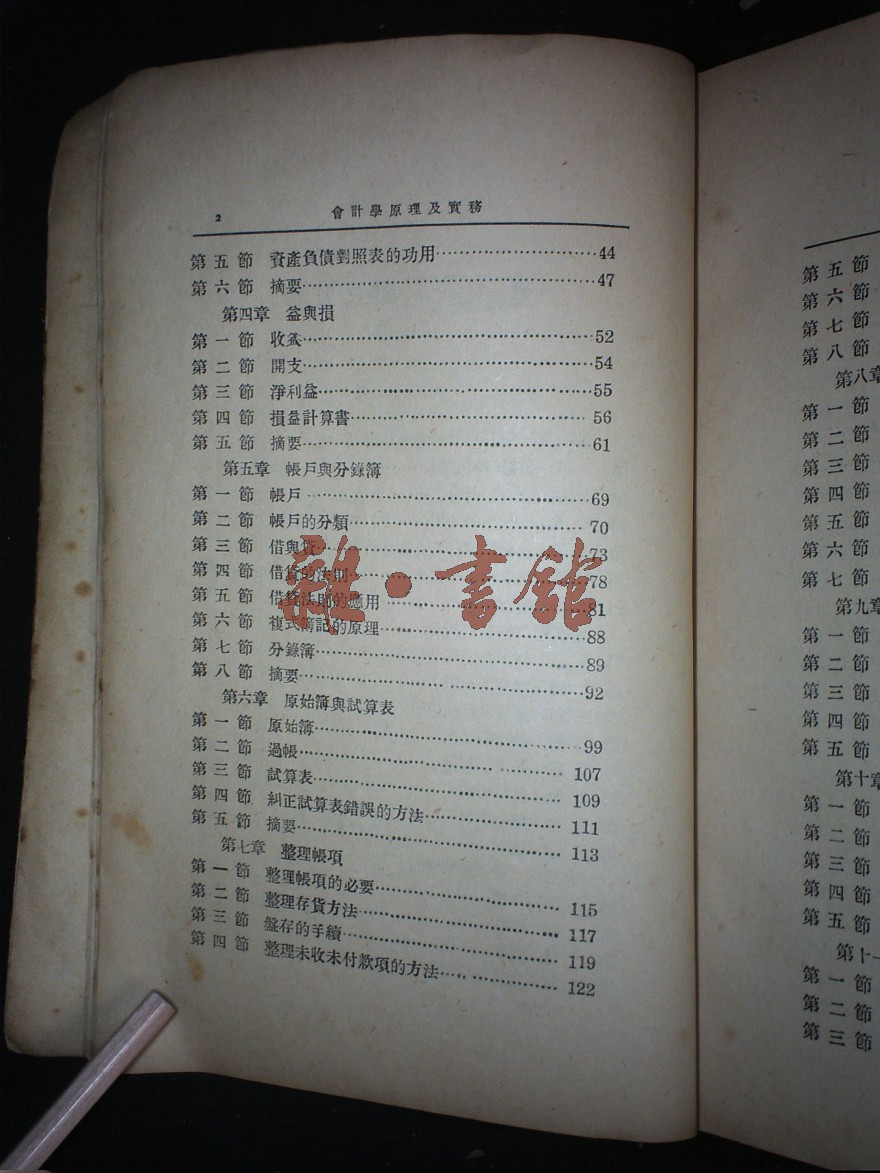 2 會計學原理及實務
第五節 資產負債對照表的功用……44
第六節 摘要……47
第四章 益與損
第一節 收益……52
第二節 開支……54
第三節 淨利益……55
第四節 損益計算書……56
第五節 摘要……61
第五章 帳戶與分錄簿
第一節 帳戶……69
第二節 帳戶的分類……70
第三節 借與貸……73
第四節 借貸的法則……78
第五節 借貸法則的應用……81
第六節 複式簿記的原理……88
第七節 分錄簿……89
第八節 摘要……92
第六章 原始簿與試算表
第一節 原始簿……99
第二節 過帳……107
第三節 試算表……109
第四節 糾正試算表錯誤的方法……111
第五節 摘要……113
第七章 整理帳項
第一節 整理帳項的必要……115
第二節 整理存貨方法……117
第三節 盤存的手續……119
第四節 整理未收未付款項的方法……122
雜·書館
第五節
第六節
第七節
第八節
第八章
第一節
第二節
第三節
第四節
第五節
第六節
第七節
第九章
第一節
第二節
第三節
第四節
第五節
第十章
第一節
第二節
第三節
第四節
第五節
第十一
第一節
第二節
第三節